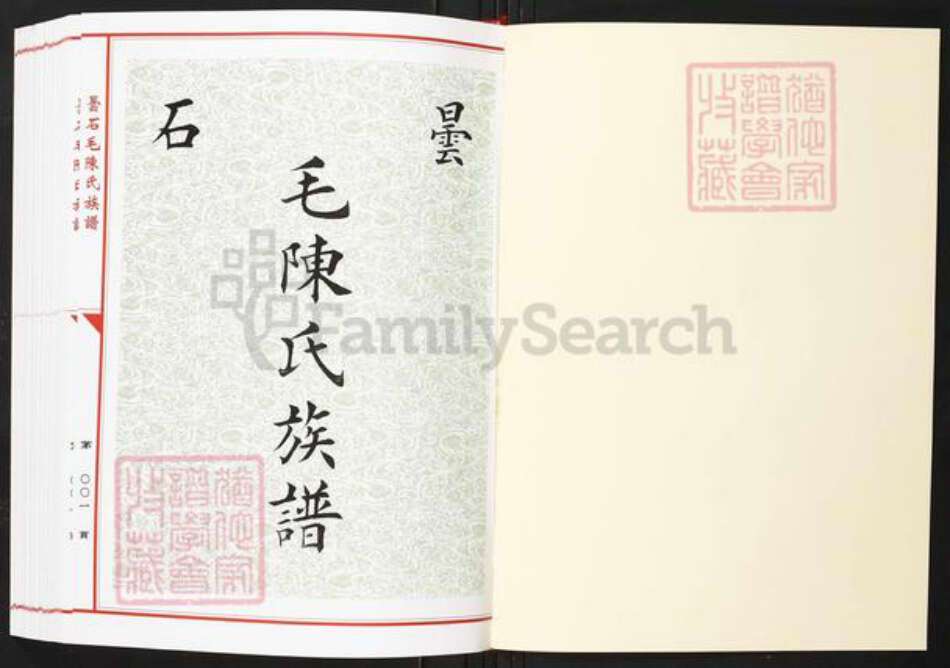 曇石
毛陳氏族譜
曇石毛陳氏族譜
第〇〇一頁
猶他家
譜學會
收藏
猶他家
譜學會
收藏
FamilySearch